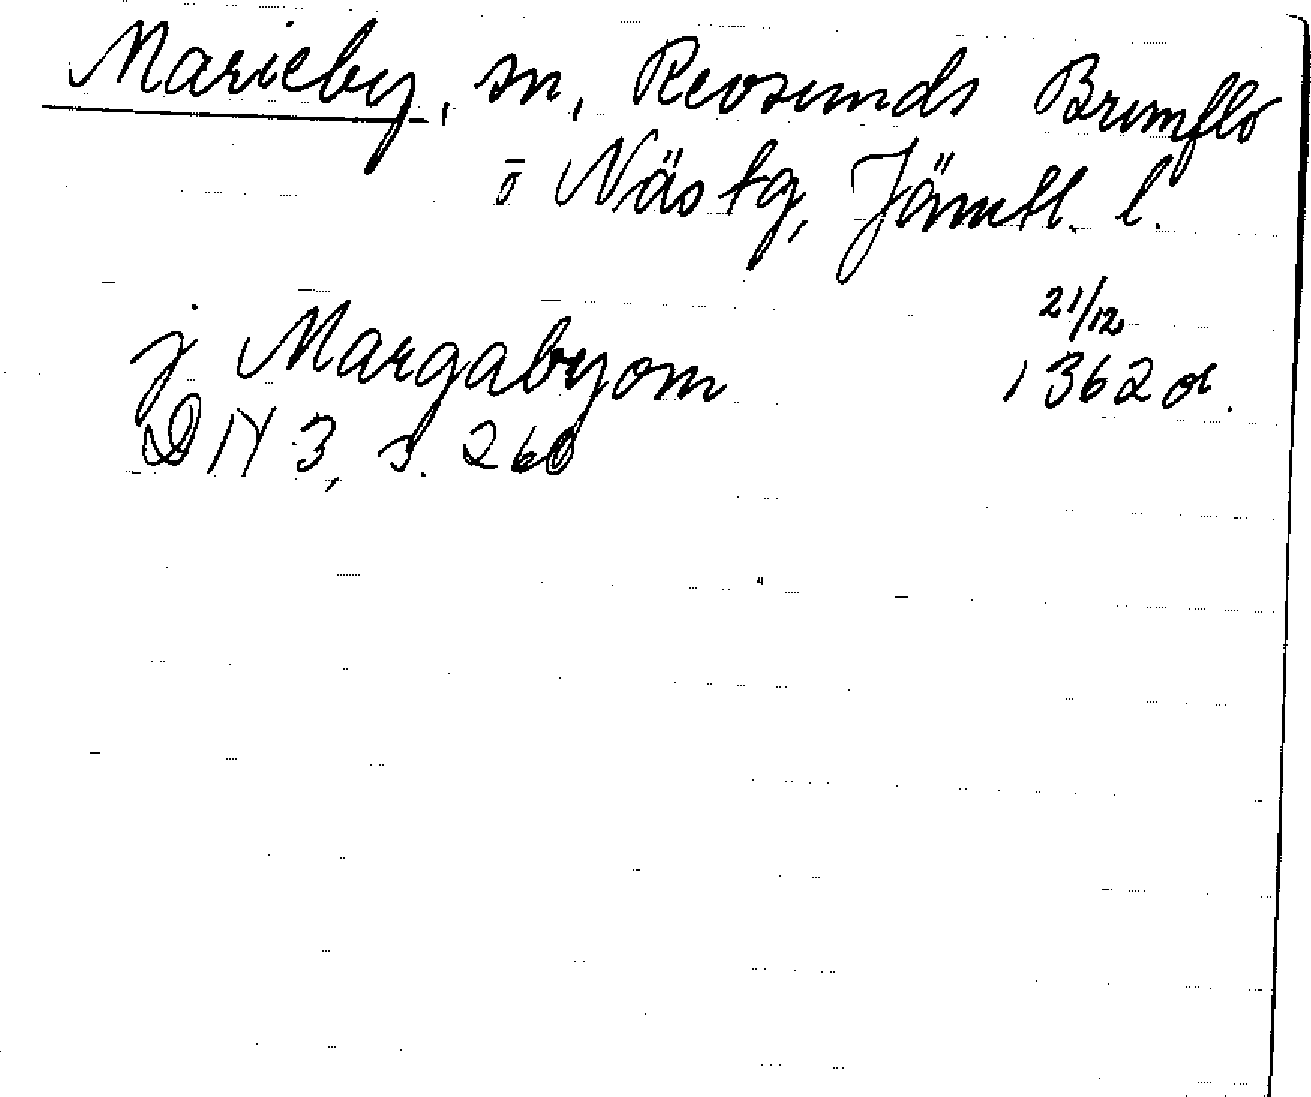 Marieby, sn, Revsunds Brunflo
o Näs tg, Jämtl. l.
21/12
j Margabyom 1362 or.
DN 3, s. 260